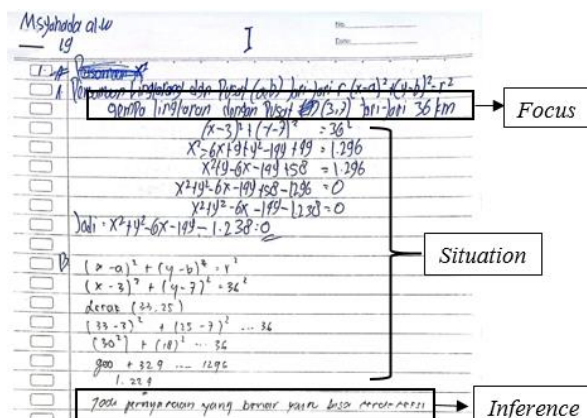 Msyahada al.w
19
I
No.
Date:
1.
A Persamaan lingkaran dan Pusat (a,b) Jari Jari r (x-a)²+(y-b)²=r²
gempa lingkaran dengan Pusat (3,7) Jari-Jari 36 km
Focus
(x-3)²+(y-7)² = 36²
x²-6x+9+y²-14y+49 = 1.296
x²+y²-6x-14y+58 = 1.296
x²+y²-6x-14y+58-1296 = 0
x²+y²-6x-14y-1.238=0
Jadi: x²+y²-6x-14y-1.238=0
Situation
B
(x-a)² + (y-b)² = r²
(x-3)² + (y-7)² = 36²
(33,25)
(33-3)² + (25-7)² ... 36
(30²) + (18)² ... 36
900 + 329 ... 1296
1.229
Jadi pernyataan yang benar yaitu bisa
Inference